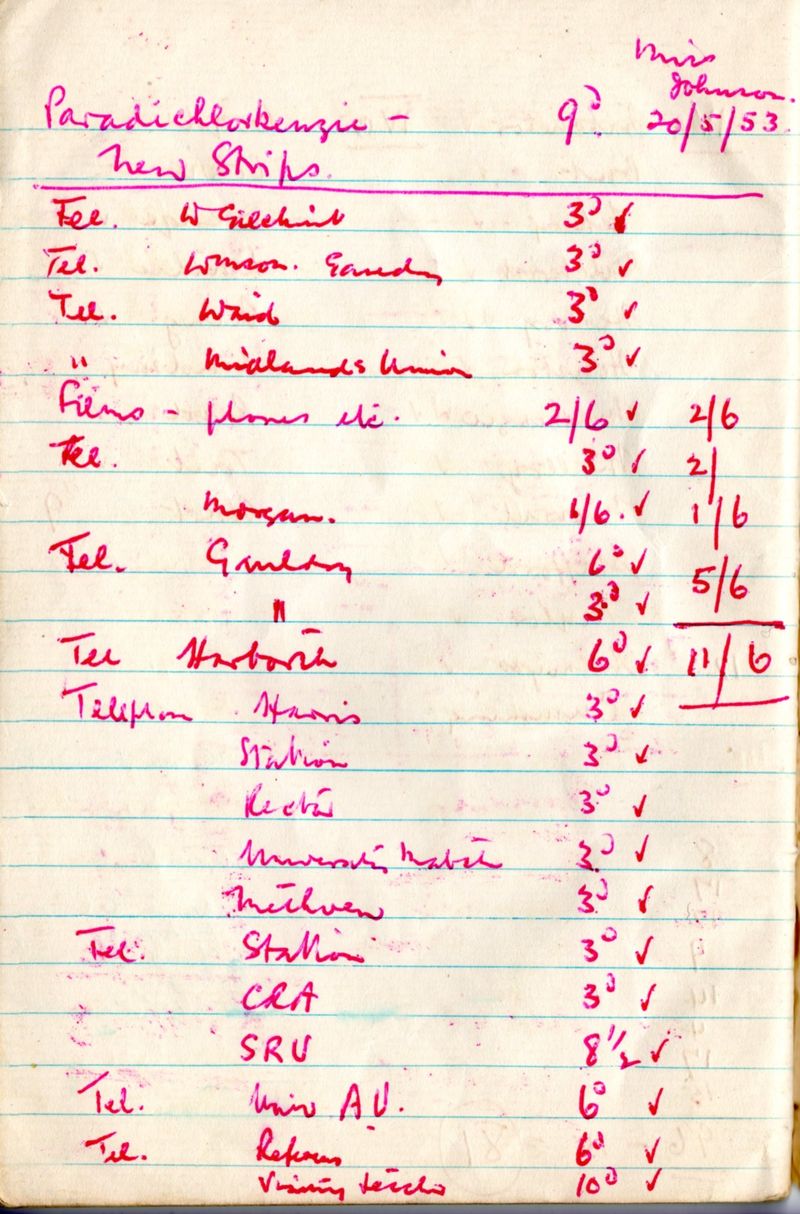 Miss
Johnson.
Paradichlorbenzie - 9ᴰ. 20/5/53.
New Strips.
Tel. W Gilchrist 3ᴰ ✓
Tel. 3ᴰ ✓
Tel. Waid 3ᴰ ✓
" Midlands Union 3ᴰ ✓
Films - phones etc. 2/6 ✓ 2/6
Tel. 3ᴰ ✓ 2/
Morgan. 1/6. ✓ 1/6
Tel. Gaulday 6ᴰ ✓ 5/6
" 3ᴰ ✓
Tel Harbarth 6ᴰ ✓ 11/6
Telephon Harris 3ᴰ ✓
Station 3ᴰ ✓
Rector 3ᴰ ✓
University Match 3ᴰ ✓
Methven 3ᴰ ✓
Tel. Station 3ᴰ ✓
CRA 3ᴰ ✓
SRU 8 1/2 ✓
Tel. Univ A U. 6ᴰ ✓
Tel. Referees 6ᴰ ✓
Visiting 10ᴰ ✓